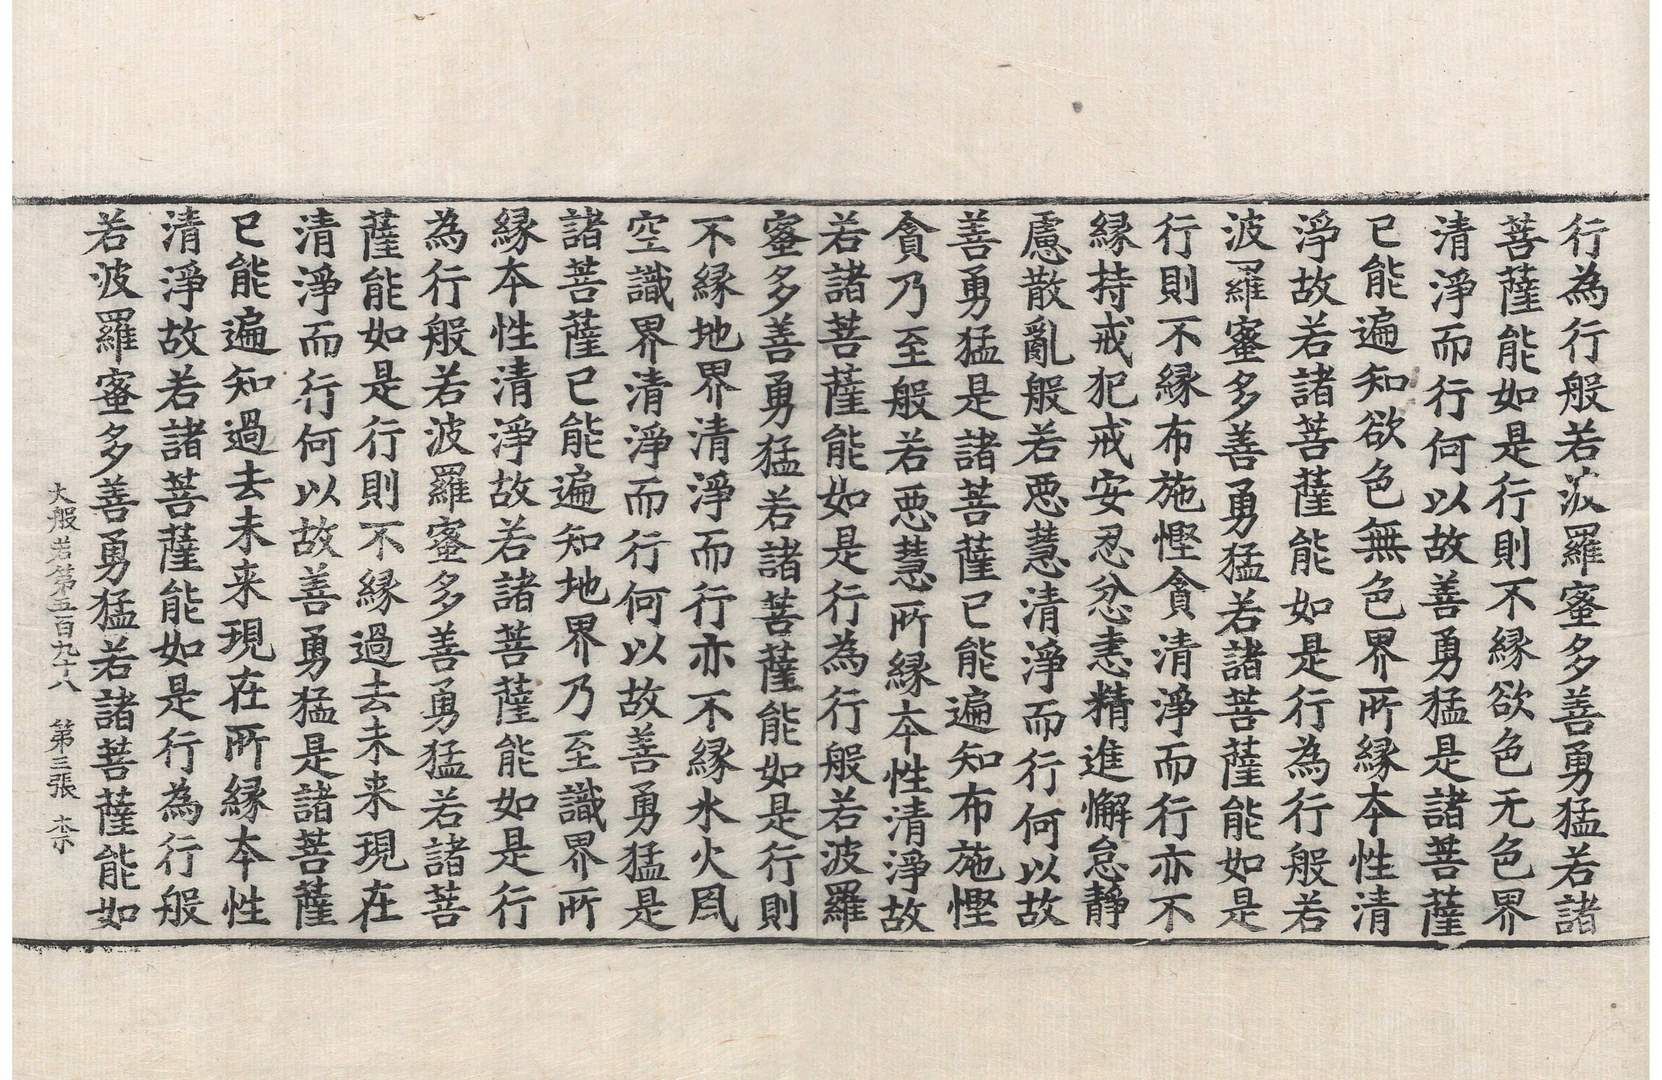 行為行般若波羅蜜多善勇猛若諸
菩薩能如是行則不縁欲色无色界
清淨而行何以故善勇猛是諸菩薩
已能遍知欲色無色界所縁本性清
淨故若諸菩薩能如是行為行般若
波羅蜜多善勇猛若諸菩薩能如是
行則不縁布施慳貪清淨而行亦不
縁持戒犯戒安忍忿恚精進懈怠靜
慮散亂般若悪慧清淨而行何以故
善勇猛是諸菩薩已能遍知布施慳
貪乃至般若悪慧所縁本性清淨故
若諸菩薩能如是行為行般若波羅
蜜多善勇猛若諸菩薩能如是行則
不縁地界清淨而行亦不縁水火風
空識界清淨而行何以故善勇猛是
諸菩薩已能遍知地界乃至識界所
縁本性清淨故若諸菩薩能如是行
為行般若波羅蜜多善勇猛若諸菩
薩能如是行則不縁過去未来現在
清淨而行何以故善勇猛是諸菩薩
已能遍知過去未来現在所縁本性
清淨故若諸菩薩能如是行為行般
若波羅蜜多善勇猛若諸菩薩能如
大般若第五百九十八 第三張 柰